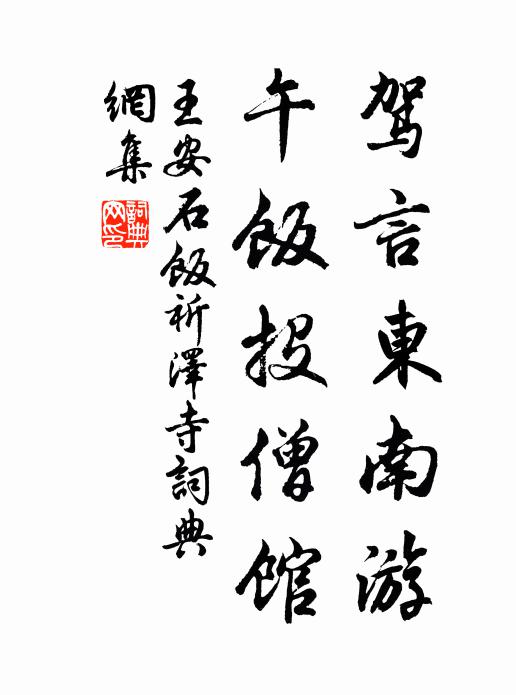 駕言東南游
午飯投僧館
王安石飯祈澤寺詞典
網集
詞典
网印